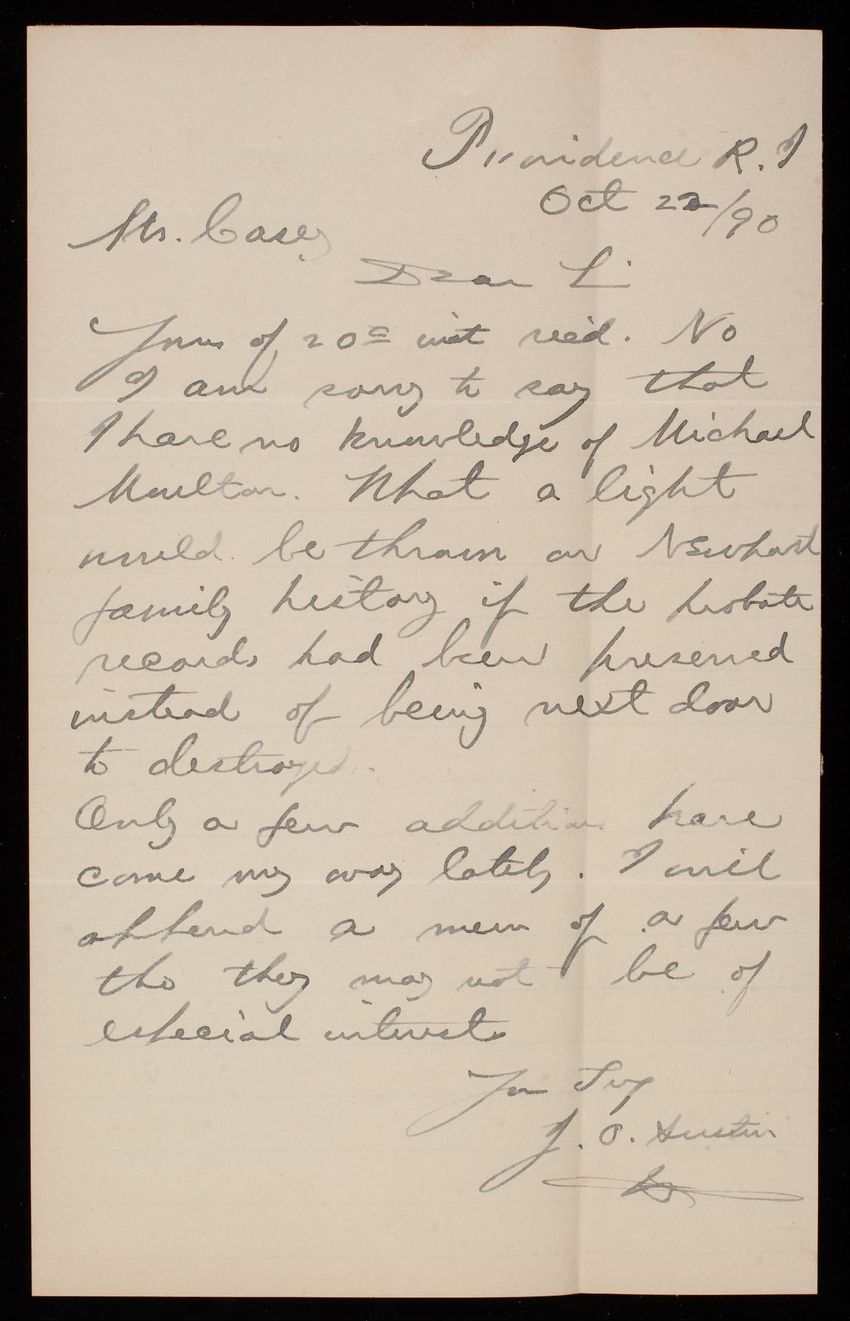 Providence R. I
Oct 22/90
Mr. Casey
Dear Si
Yours of 20th inst rec'd. No
I am sorry to say that
I have no knowledge of Michael
Moulton. What a light
would be thrown on
family history if the probate
records had been preserved
instead of being next door
to destroyed.
Only a few additions have
come my way lately. I will
append a mem of a few
tho they may not be of
especial interest.
J. O. Austin